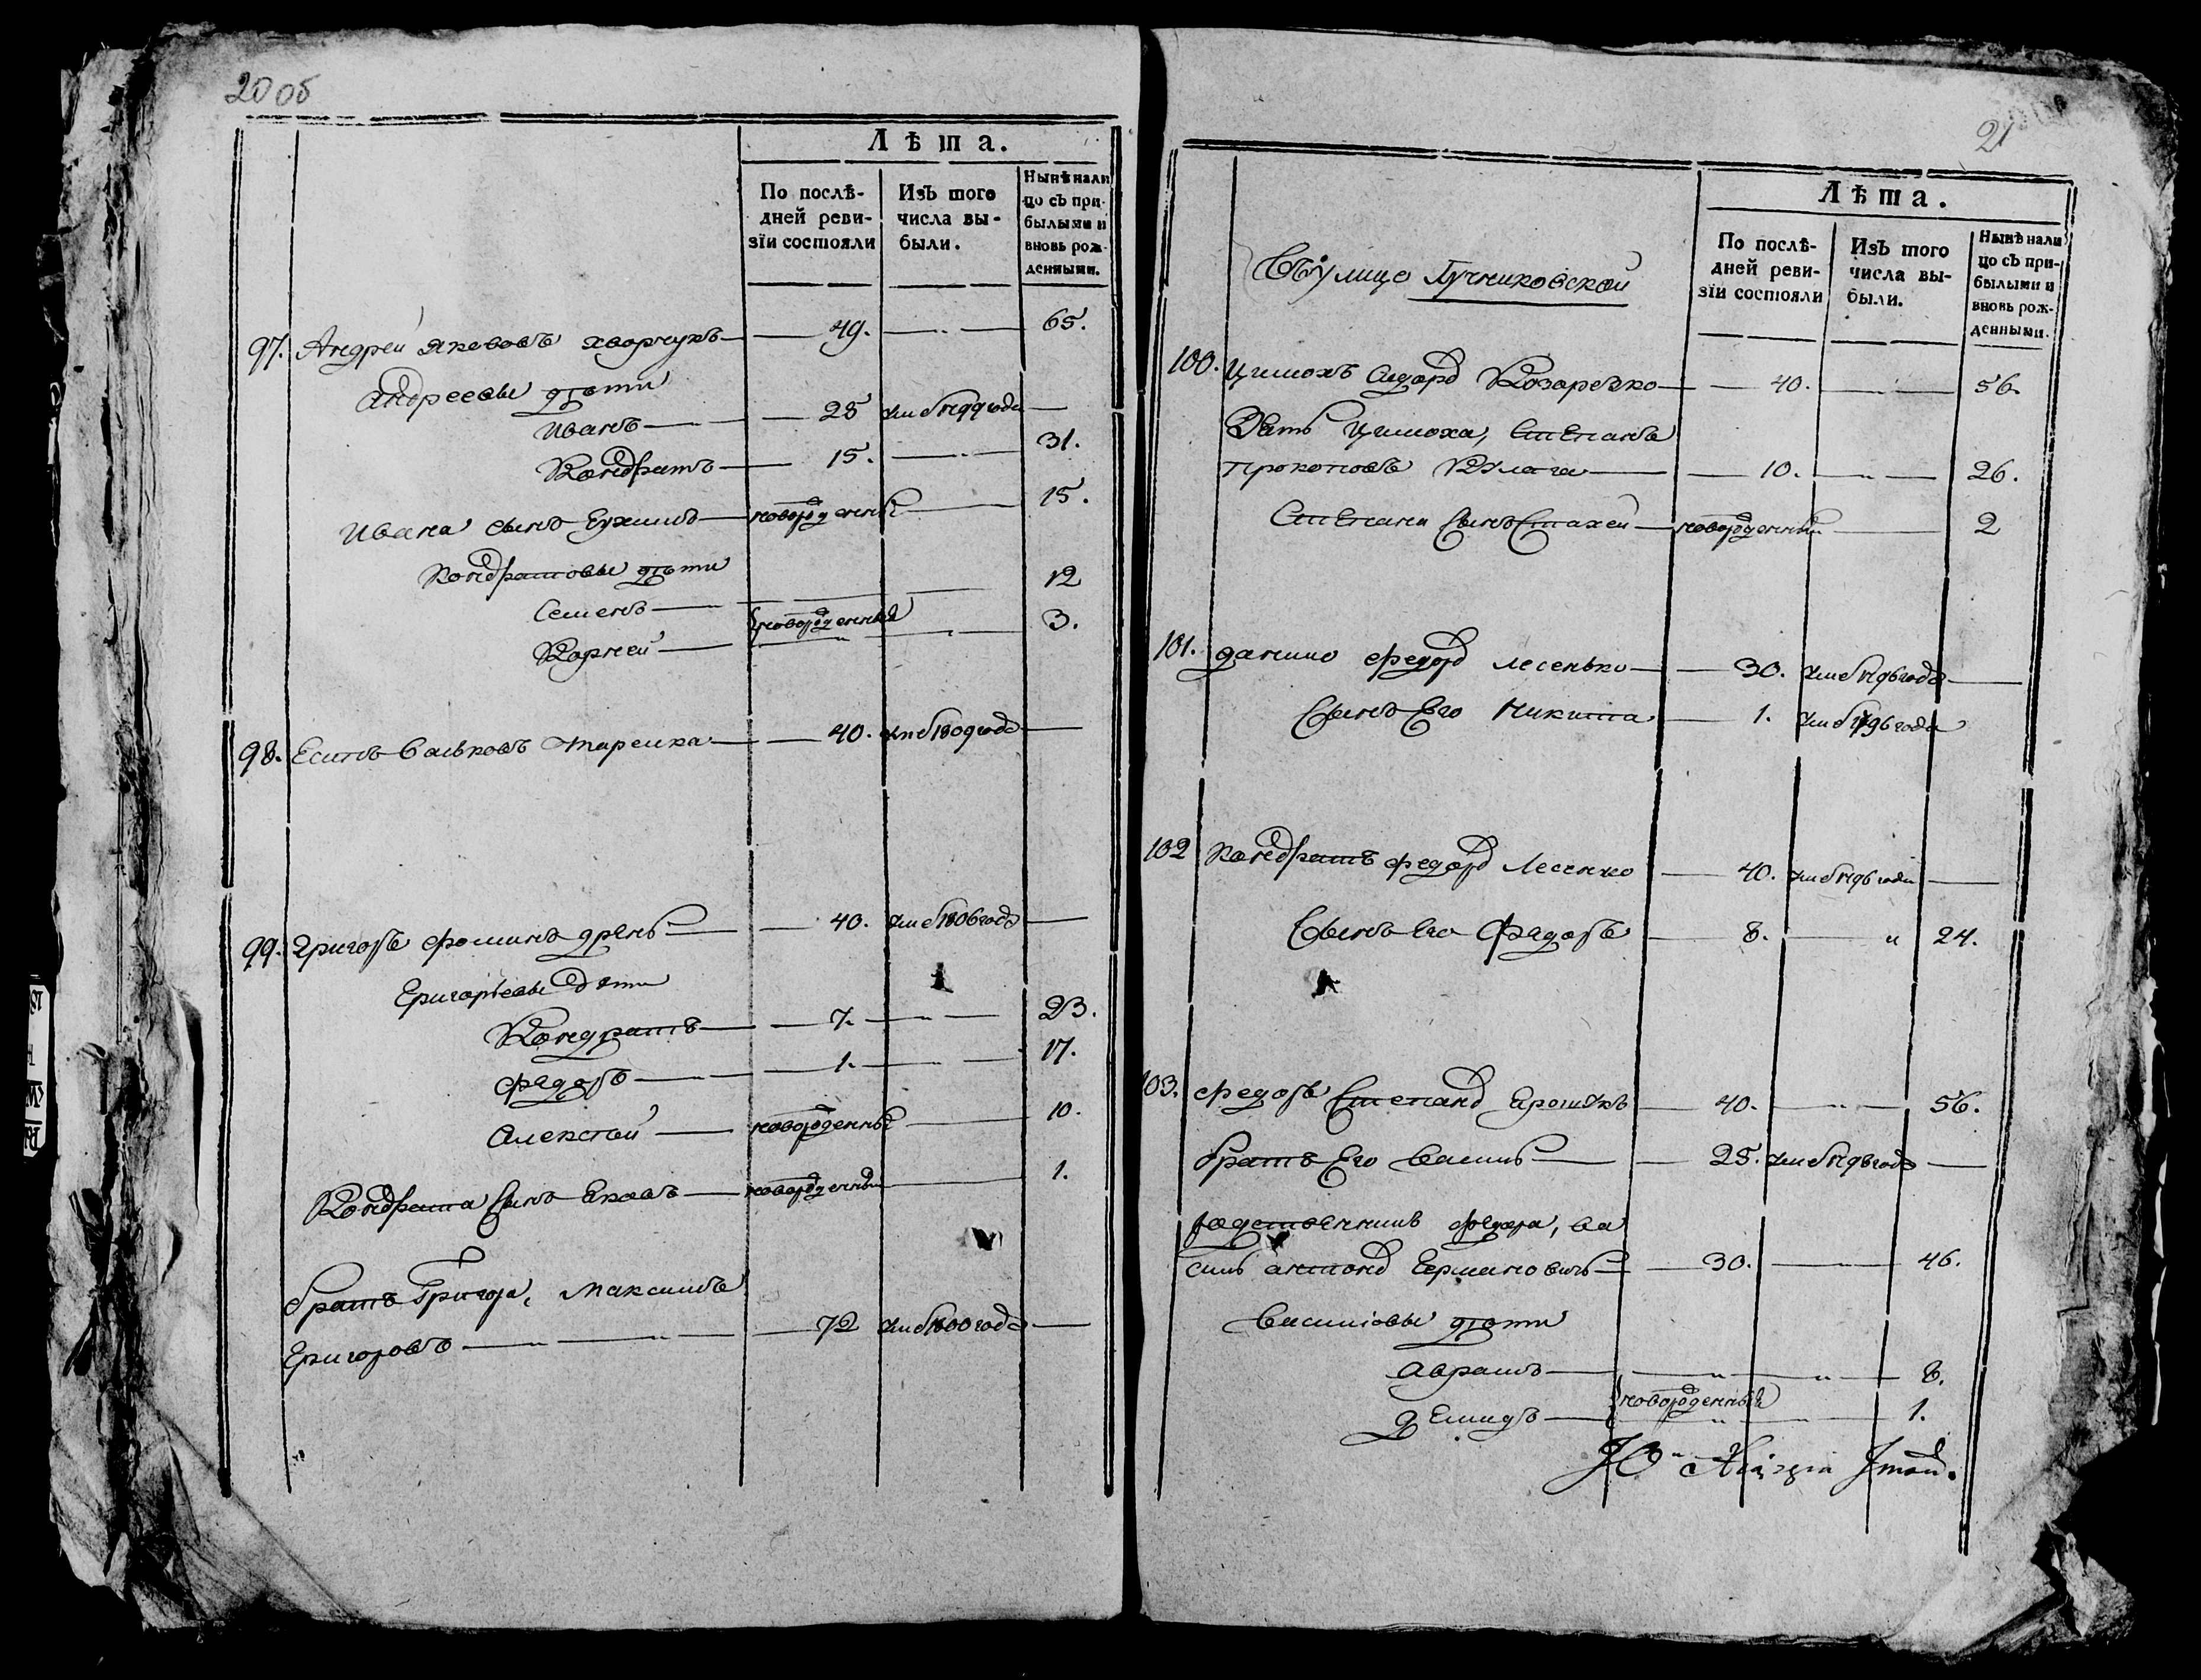 20 об
Лѣта.
По послѣдней ревизіи состояли
Изъ того числа выбыли.
Нынѣ налицо съ прибылыми и вновь рожденными.
97. Андрей Якововъ Хворчукъ — 49. — 65.
Андреевы дѣти
Иванъ — 25 умеъ 1799 года —
Кондратъ — 15. — 31.
Ивана сынъ Ехимъ — новорожденны — 15.
Кондратовы дѣти
Семенъ — 12
новорожденныя
Корней — 3.
98. Есипъ Вальковъ — 40. умеъ 1809 года —
99. Григоръ Фоминъ — 40. умеъ 1806 года —
Григорьевы дѣти
Кондратъ — 7. — " — 23.
Федоръ — 1. — 17.
Алексей — новорожденны — 10.
Кондрата сынъ Яковъ — новорожденны — 1.
братъ Григора, Максимъ
Григоровъ — " — 72 умеъ 1800 года —
21
Лѣта.
По послѣдней ревизіи состояли
Изъ того числа выбыли.
Нынѣ налицо съ прибылыми и вновь рожденными.
Въ улице Лучниковской
100. Цимохъ Сидоровъ Козаречко — 40. — 56.
Зять Цимоха, Степанъ
Прокоповъ Кулага — 10. — 26.
Степана сынъ Стахей — новорожденны — 2
101. Данило Федоровъ Лесенько — 30. умеъ 1796 года —
Сынъ Его Никита — 1. умеъ 1796 года
102 Кондратъ Федоровъ Лесенко — 40. умеъ 1796 года —
Сынъ Его Федоръ — 8. — " 24.
103. Федоръ Степановъ — 40. — " — 56.
братъ Его Василь — 25. умеъ 1798 года —
родственникъ Федора, Ва
силь Антоновъ Ермановичъ — 30. — 46.
Васильовы дѣти
Аврамъ — " — " — 8.
новорожденныя
Демидъ — " — 1.